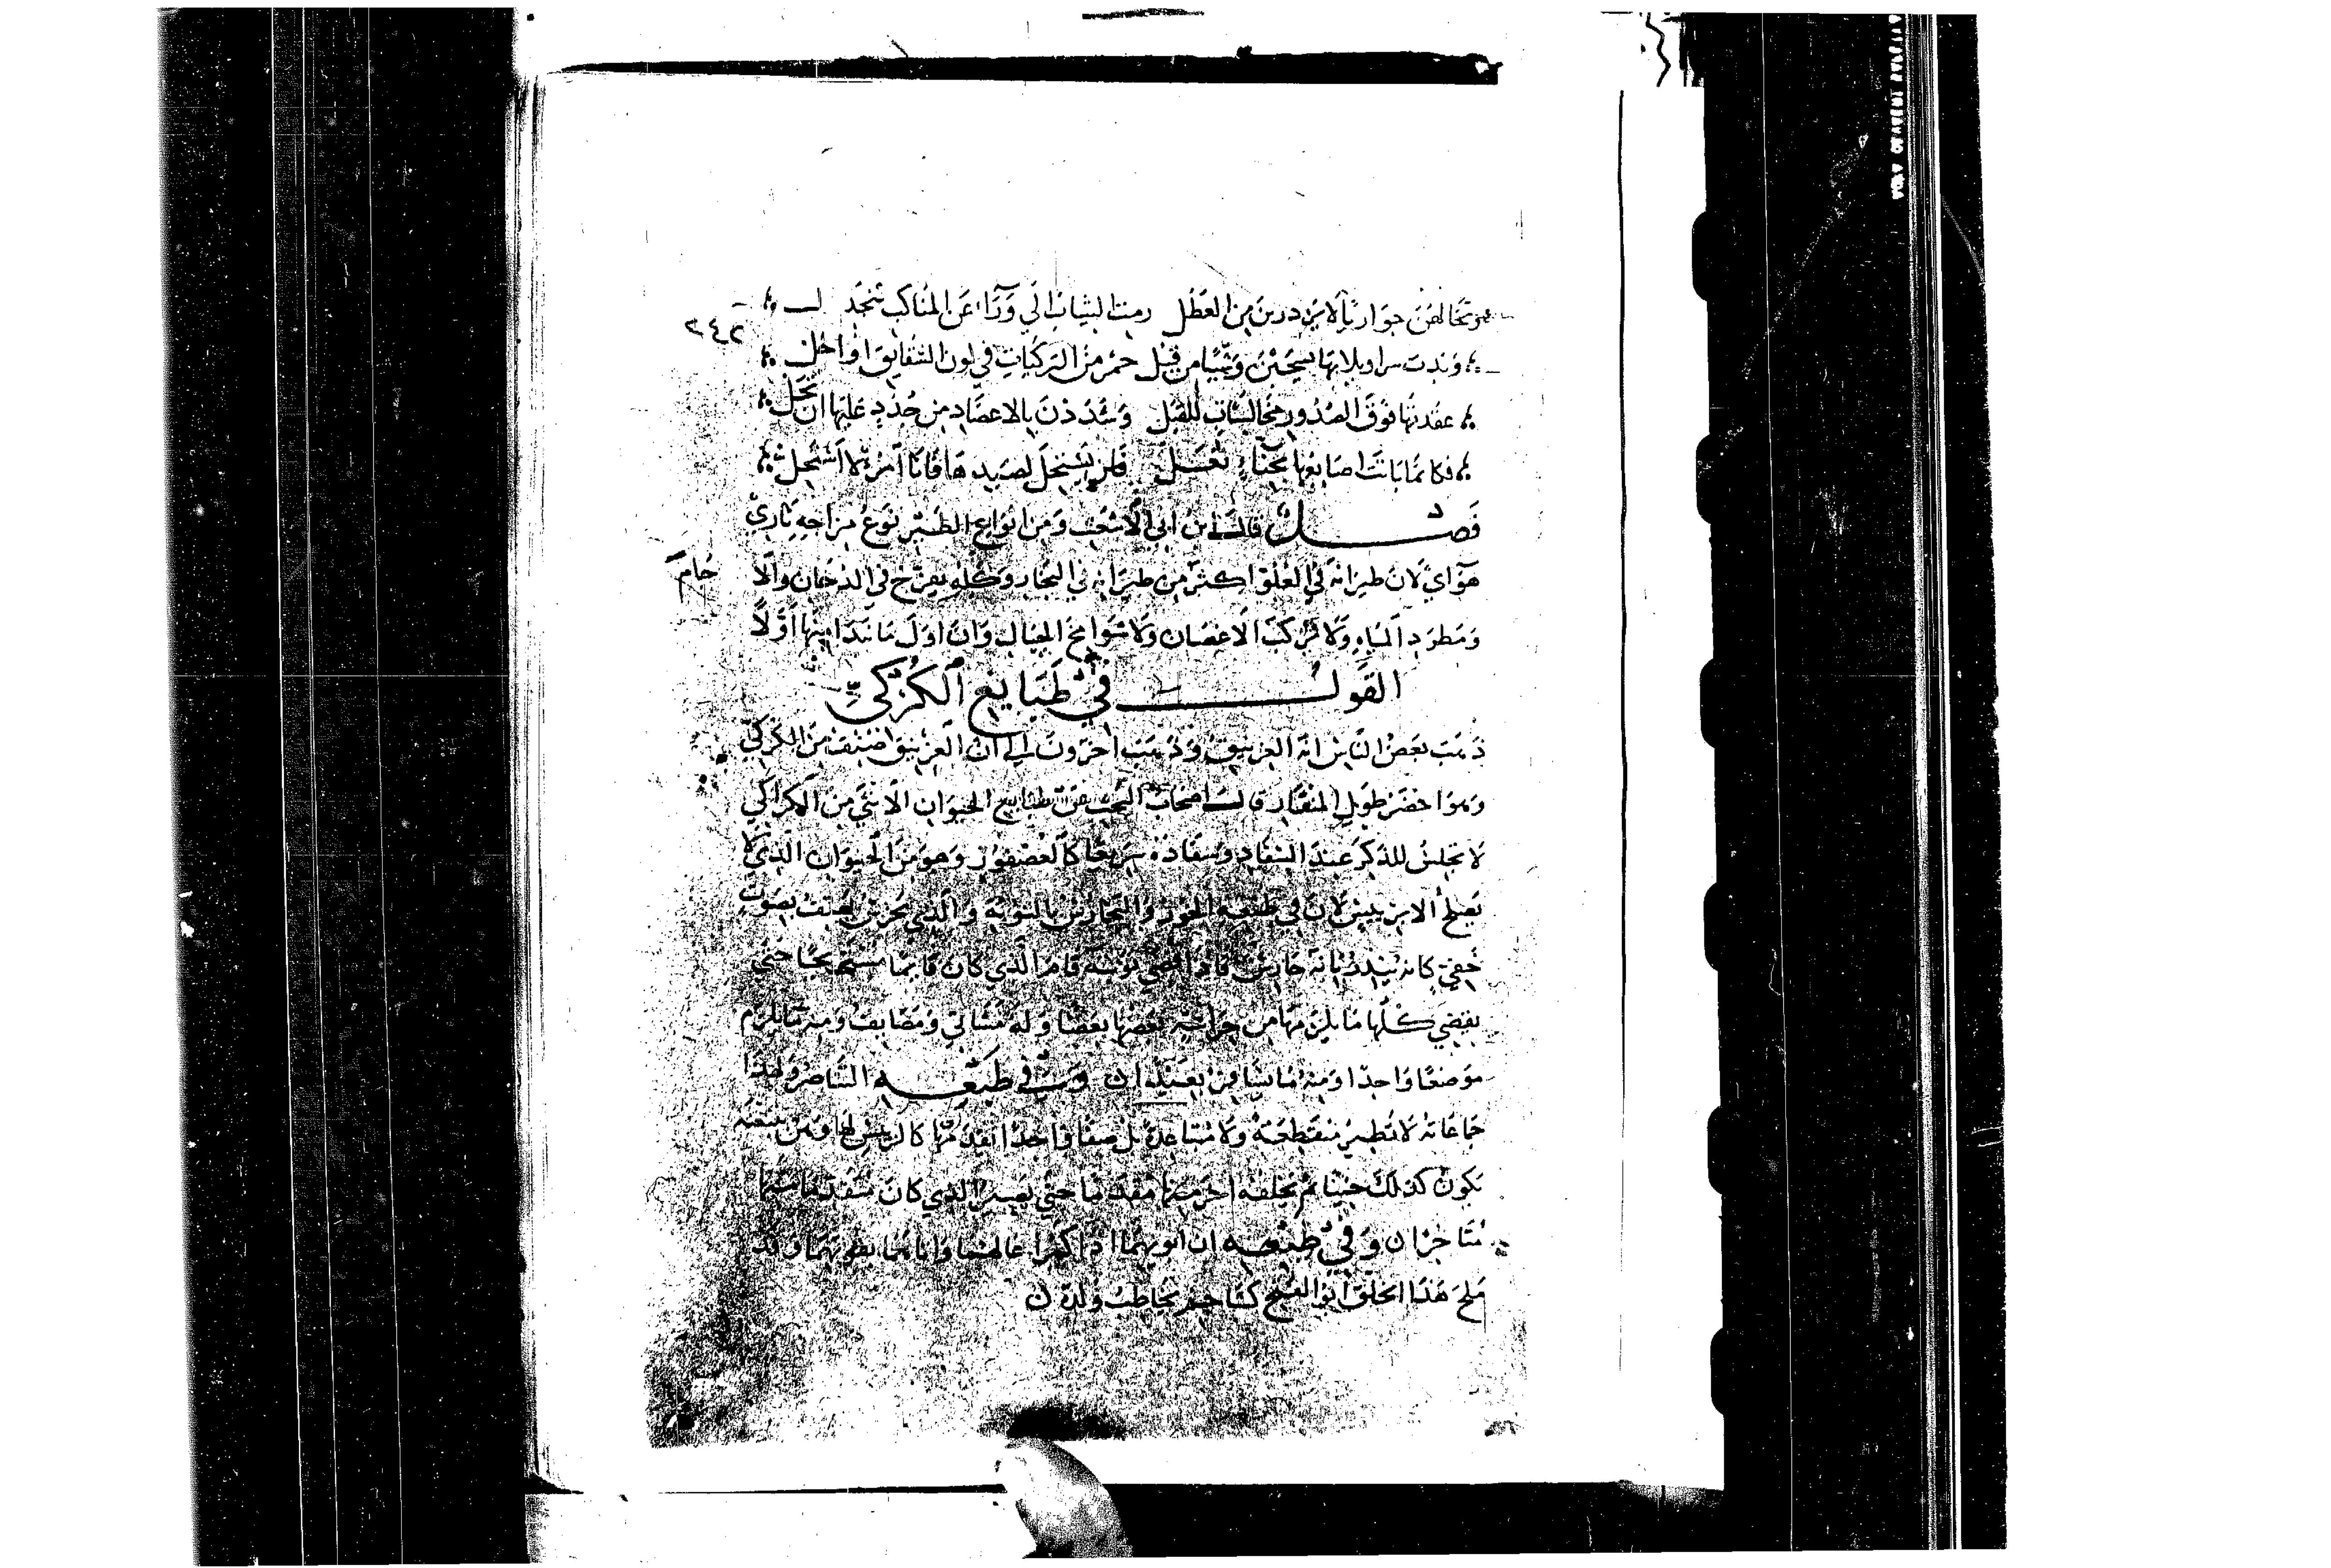 وتخالهن جواريا لا بن درين من العطل رمت الثياب الي ورآء عن المناكب تنجدل
٢٤٢
وبدت سراويلاتها يسحبن وشيا من قبل حمر من التركيات في لون الشقايق او اخل
عقدتها فوق الصدور مخالسات للقبل وشددن بالاعضاد من حذر عليها ان تحل
فكانما باتت اصابعها بحناء تعل فمن يستحل لصيدها فانا امرؤ لا استحل
فصل قال ابن ابي الاشعث ومن انواع الطير نوع مزاجه ناري
هوآي لان طيرانه في العلو اكثر من طيرانه في البخار وكله يفرخ في الدخان والآ
جام
ومطرد المياه ولا تركب الاغصان ولا شوامخ الجبال وان اول ما نبدا منها اولا
القول في طبايع الكركي
ذهب بعض الناس انه الغرنيق وذهب اخرون الي ان الغرنيق صنف من الكركي
وهو اخضر طويل المنقار قالت اصحاب البحث عن طبايع الحيوان الانثي من الكراكي
لا تجلس للذكر عند السفاد وسفاده سريعا كالعصفور وهو من الحيوان الذي لا
يصلح الا برييس لان في طبعه الخور والتحارس بالنوبة والذي يحرس يهتف بصوت
خفي كانه ينذر بانه حارس فاذا قضي نوبته قام الذي كان قايما مستريحا حتي
يقضي كلها ما يلزمها من حراسة بعضها بعضا وله مشاتي ومصايف ومنه ما يلزم
موضعا واحدا ومنه ما يسافر بعيدا وفي طبعه التناصر ولهذا
جماعاته لا تطير منقطعة ولا متباعدة بل صفا واحدا يقدمها كالرييس لها وهن يتبعنه
يكون كذلك حينا ثم يخلفه اخر منها مقدما حتي يصير الذي كان متقدما منها
متاخرا وفي طبعه ان ابويهما اذا كبرا عالهما واباتهما بقوتهما وقد
ملح هذا الخلق ابو الفتح كشاجم يخاطب ولده